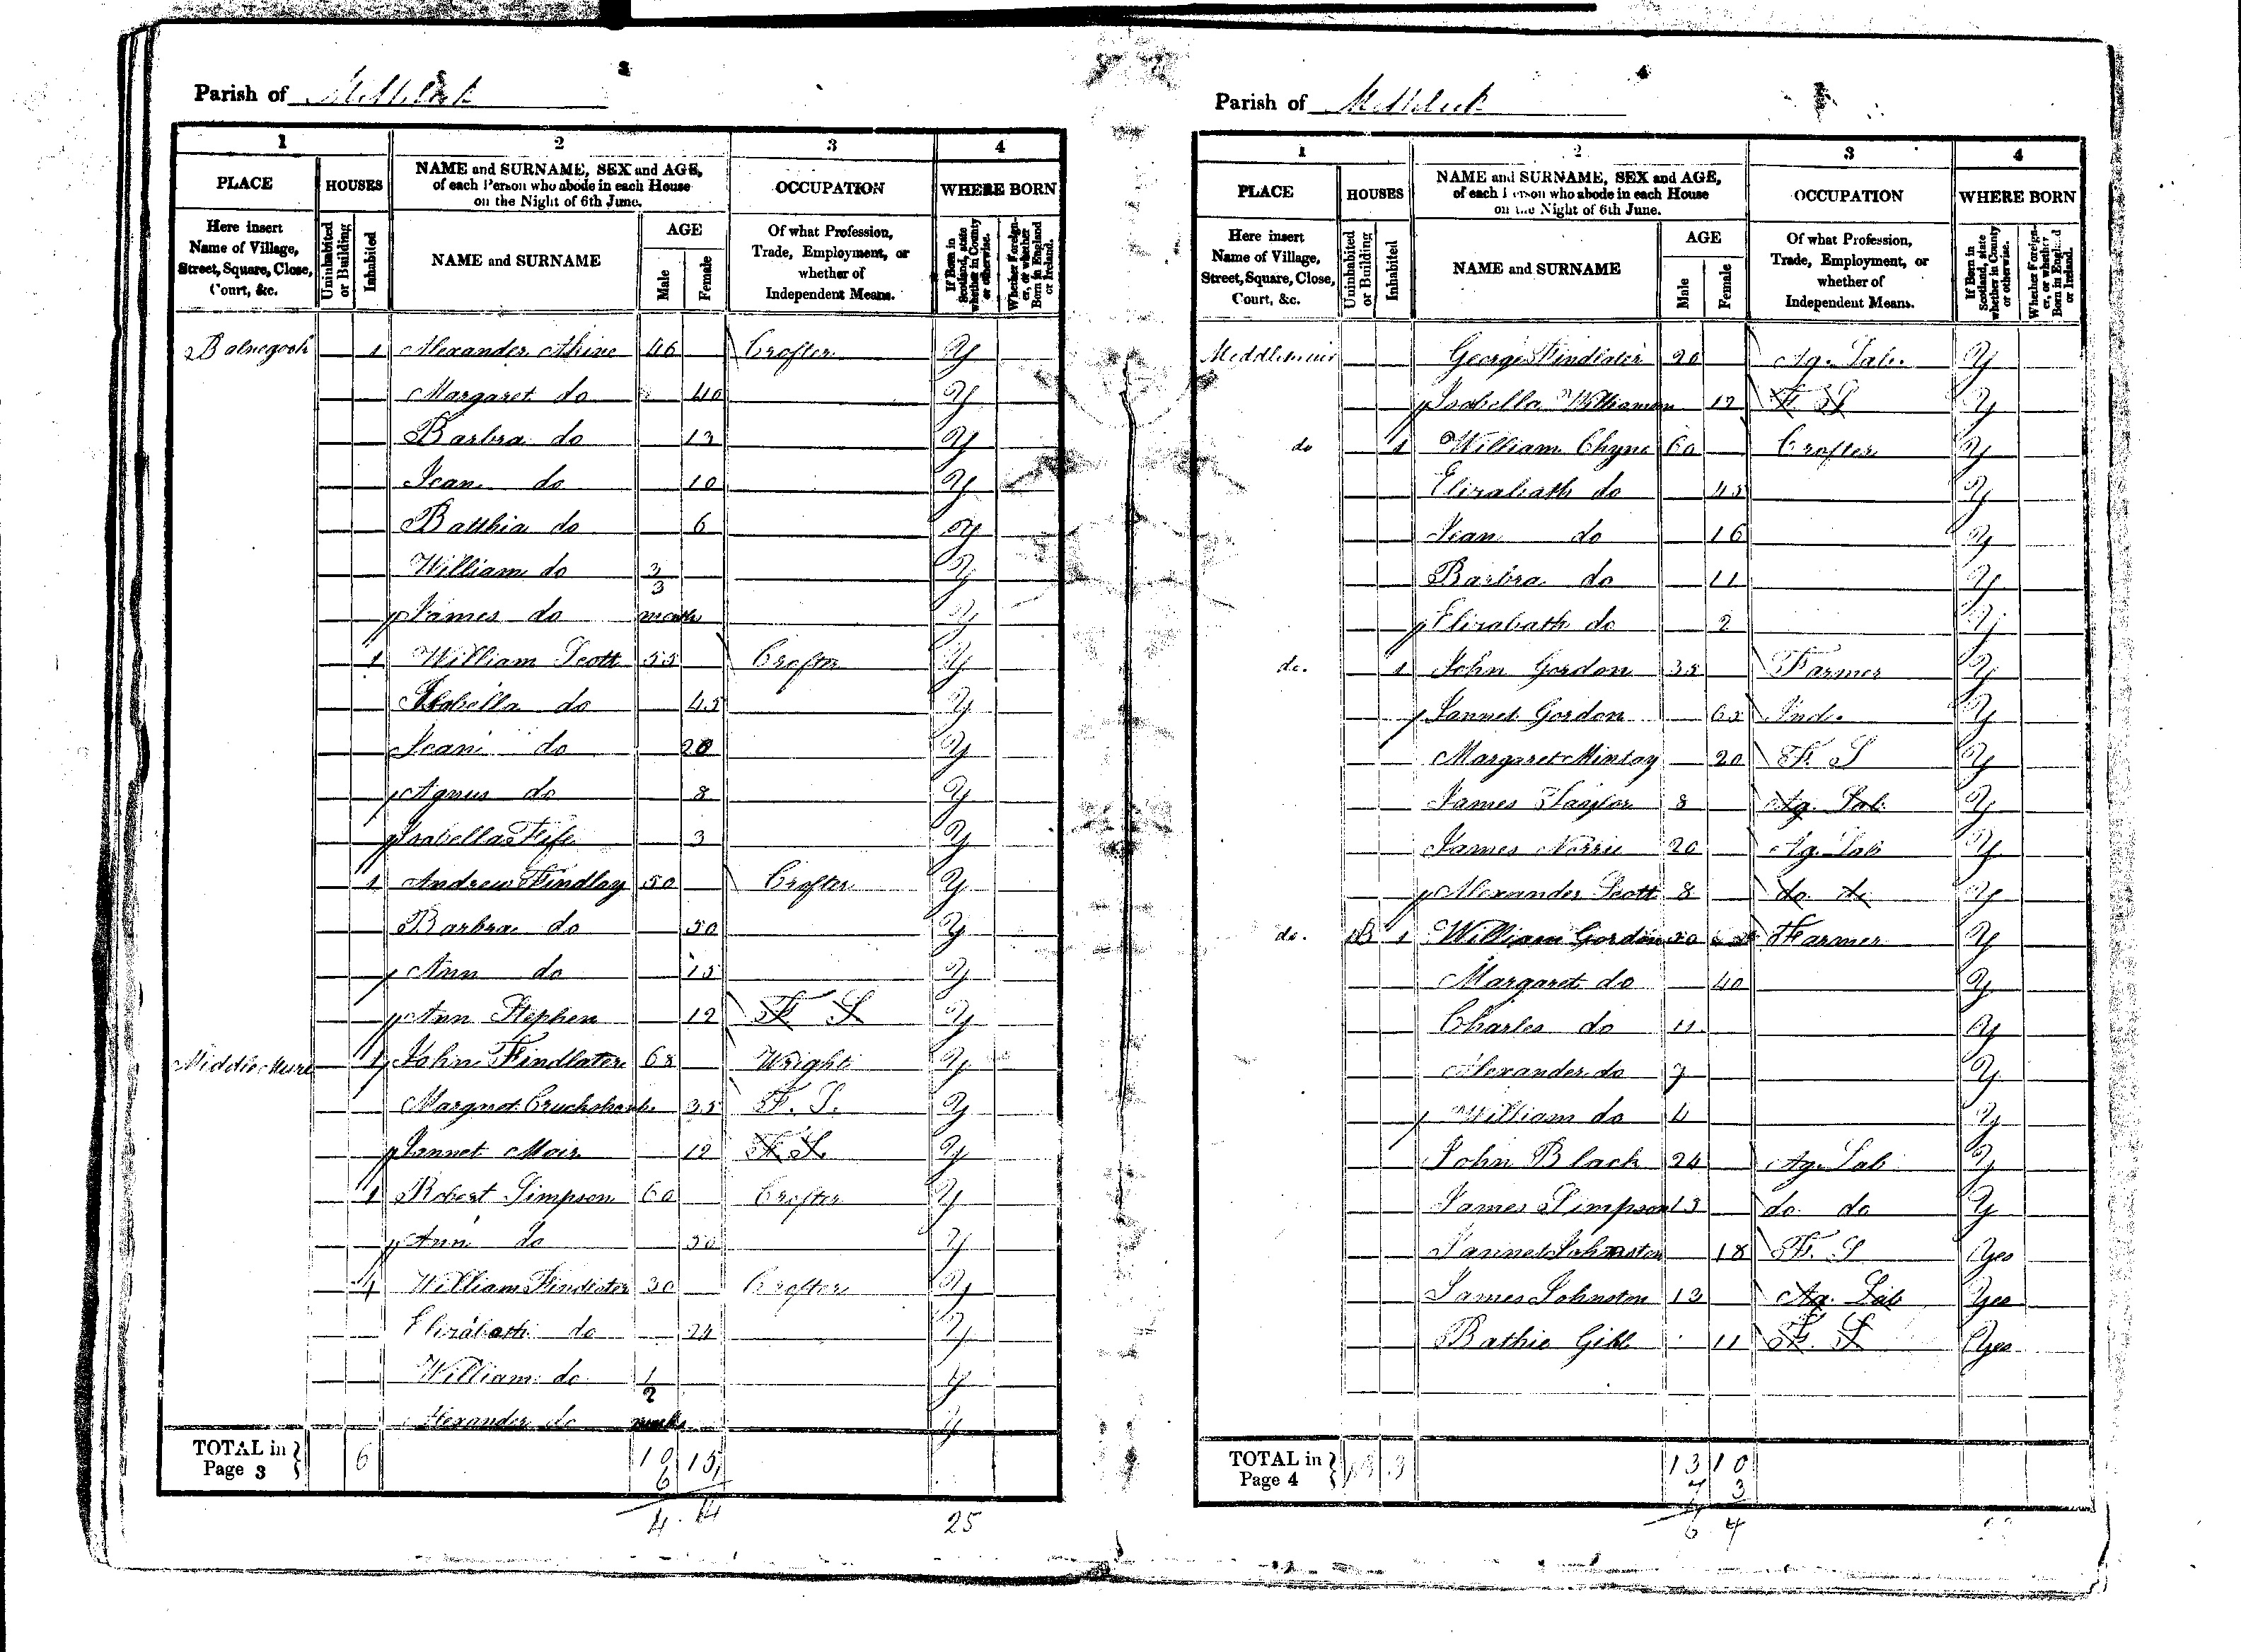 Parish of Methlick
1 2 3 4
PLACE HOUSES NAME and SURNAME, SEX and AGE, of each Person who abode in each House on the Night of 6th June. OCCUPATION WHERE BORN
Here insert Name of Village, Street, Square, Close, Court, &c. Uninhabited or Building Inhabited NAME and SURNAME AGE Male Female Of what Profession, Trade, Employment, or whether of Independent Means. If Born in Scotland, state whether in County or otherwise. Whether Foreigner, or whether Born in England or Ireland.
1 Alexander 46 Crofter Y
Margaret do 40 Y
Barbra do 13 Y
Jean do 10 Y
Batthia do 6 Y
William do 3 Y
James do 3 month Y
1 William Scott 55 Crofter Y
Isabella do 45 Y
Jean do 20 Y
Agnus do 8 Y
Isabella Fife 3 Y
1 Andrew Findlay 50 Crofter Y
Barbra do 50 Y
Ann do 15 Y
Ann Stephen 12 F S Y
Middle Muir 1 John Findlater 68 Wright Y
Margret Cruckshank 35 F. S. Y
Jannet Mair 12 F S Y
1 Robert Simpson 60 Crofter Y
Ann do 50 Y
1 William Findlater 30 Crofter Y
Elizabath do 24 Y
William do 1 Y
Alexander do 2 weeks Y
TOTAL in Page 3 } 6 10 15
6
4 14 25
4
Parish of Methlick
1 2 3 4
PLACE HOUSES NAME and SURNAME, SEX and AGE, of each Person who abode in each House on the Night of 6th June. OCCUPATION WHERE BORN
Here insert Name of Village, Street, Square, Close, Court, &c. Uninhabited or Building Inhabited NAME and SURNAME AGE Male Female Of what Profession, Trade, Employment, or whether of Independent Means. If Born in Scotland, state whether in County or otherwise. Whether Foreigner, or whether Born in England or Ireland.
Middlemuir George Findlater 20 Ag. Lab. Y
Isabella Williamson 12 F S Y
do 1 William Chyne 60 Crofter Y
Elizabath do 45 Y
Jean do 16 Y
Barbra do 11 Y
Elizabath do 2 Y
do. 1 John Gordon 35 Farmer Y
Jannet Gordon 65 Ind. Y
Margaret Mintay 20 F. S Y
James Taylor 8 Ag. Lab Y
James Norrie 20 Ag. Lab Y
Alexander Scott 8 do do Y
do. 1B 1 William Gordon 50 Farmer Y
Margaret do 40 Y
Charles do 11 Y
Alexander do 7 Y
William do 4 Y
John Black 24 Ag. Lab Y
James Simpson 13 do do Y
Jannet Johnston 18 F. S Yes
James Johnston 13 Ag. Lab Yes
Bathie Gibb 11 F. S Yes
TOTAL in Page 4 } 1B 3 13 10
7 3
6 4